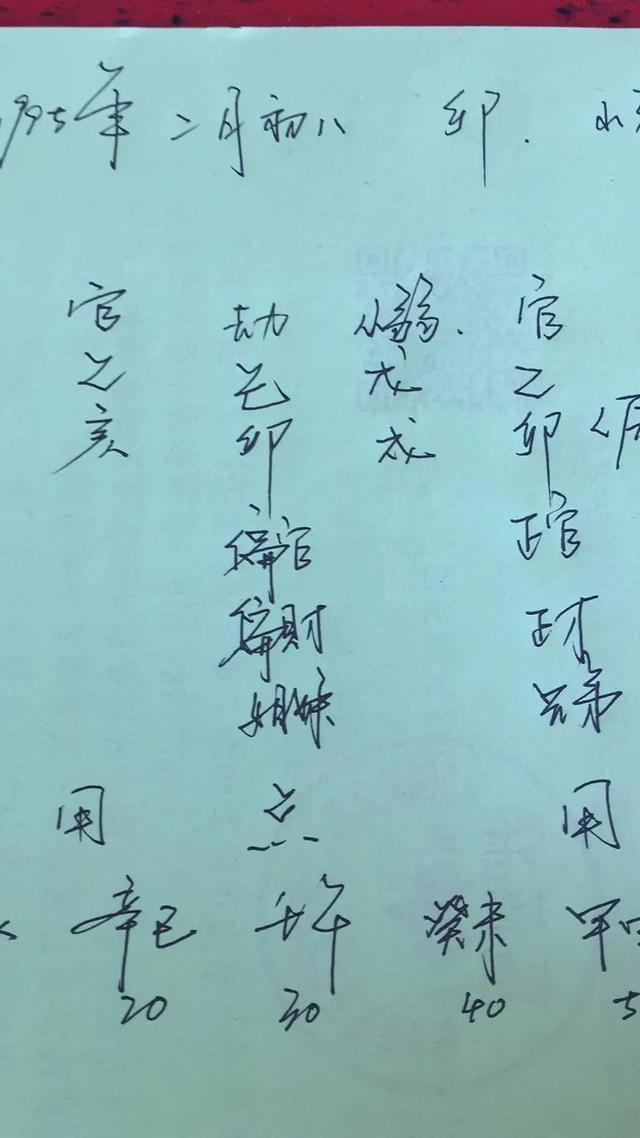 1995年 二月初八 卯.
官 劫 官
乙 己 戊 乙
亥 卯 戌 卯
偏官 正官
偏財 正才
姐妹 兄弟
用 点 用
辛巳 壬午 癸未 甲申
20 30 40 5